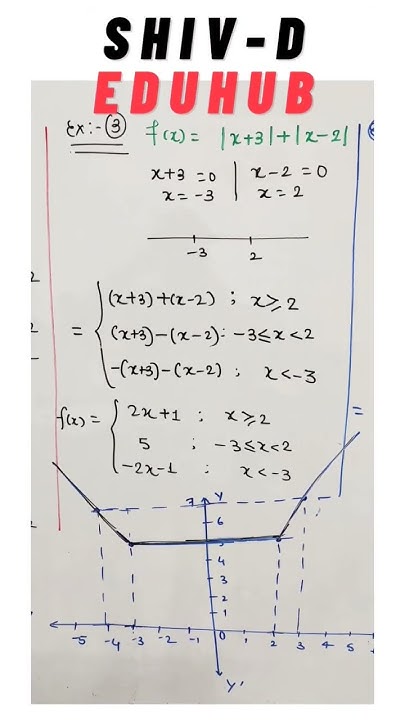 SHIV-D
EDUHUB
Ex:- (3) f(x) = |x+3|+|x-2|
x+3 = 0 | x-2 = 0
x = -3 | x = 2
-3 2
= { (x+3)+(x-2) ; x ≥ 2
(x+3)-(x-2) : -3 ≤ x < 2
-(x+3)-(x-2) ; x < -3
f(x) = { 2x+1 ; x ≥ 2
5 ; -3 ≤ x < 2
-2x-1 : x < -3
=
2
2
7 Y
6
5
4
3
2
1
-5 -4 -3 -2 -1 0 1 2 3 4 5
Y'